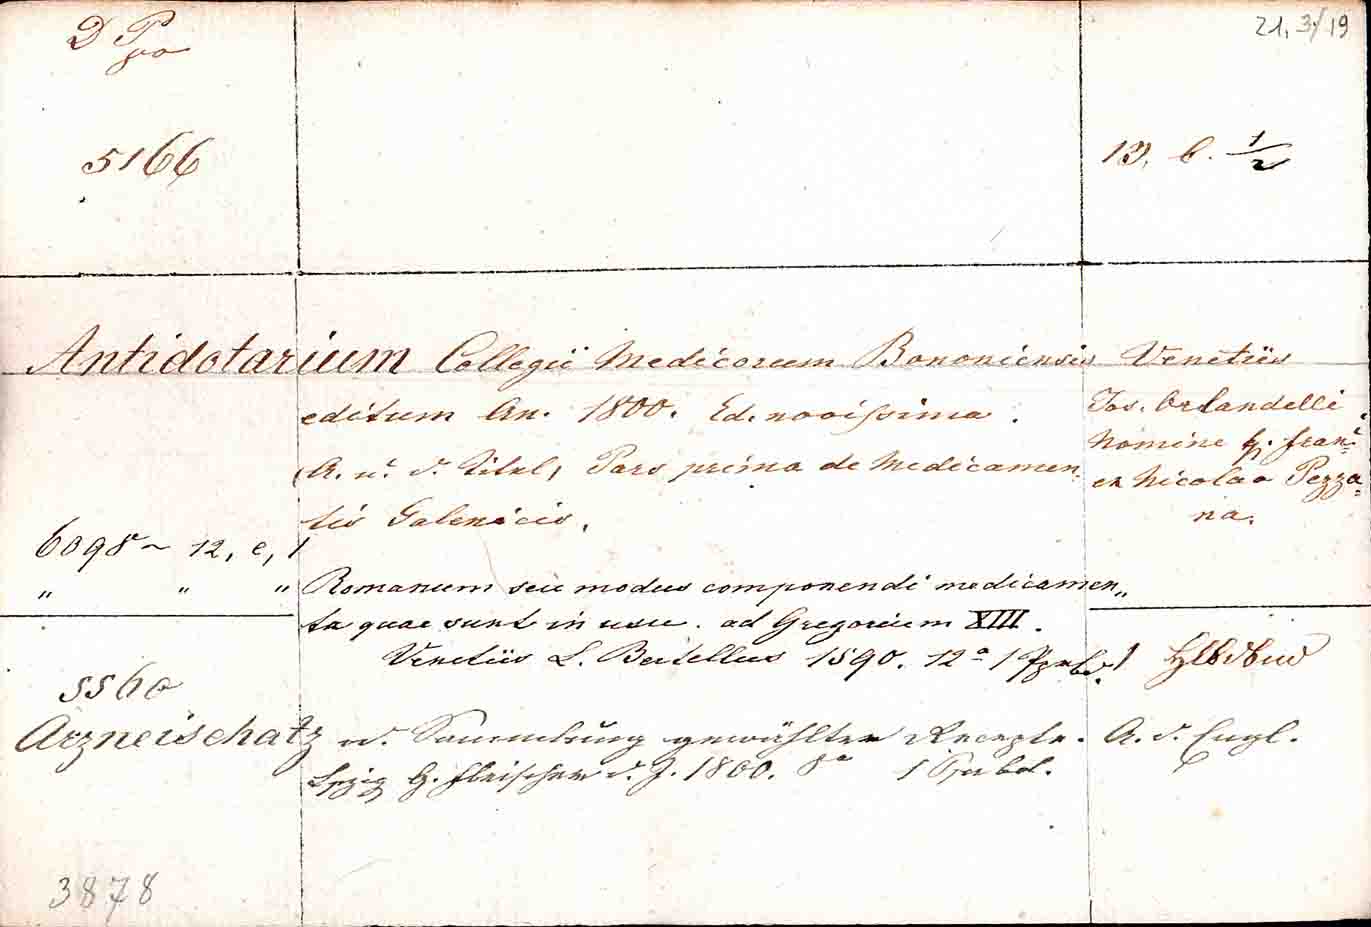 21. 3/19
5166
13. b. 1/2
Antidotarium Collegii Medicorum Bononiensis Venetiis
editum An. 1800. Ed. novissima.
Jos. Orlandelli
nomine
A. u. d. Titel, Pars prima de Medicamen-
ex Nicolao Pezza=
tis Galenicis.
na.
6098 ~ 12, e, 1
" " " Romanum seu modus componendi medicamen„
ta quae sunt in usu. ad Gregorium XIII.
Venetiis L. Bertellus 1590. 12° 1
5560
Arzneischatz od. Sammlung gewählter Recepte. A. d. Engl.
Lpzig G. Fleischer d. J. 1800. 8° 1
3878